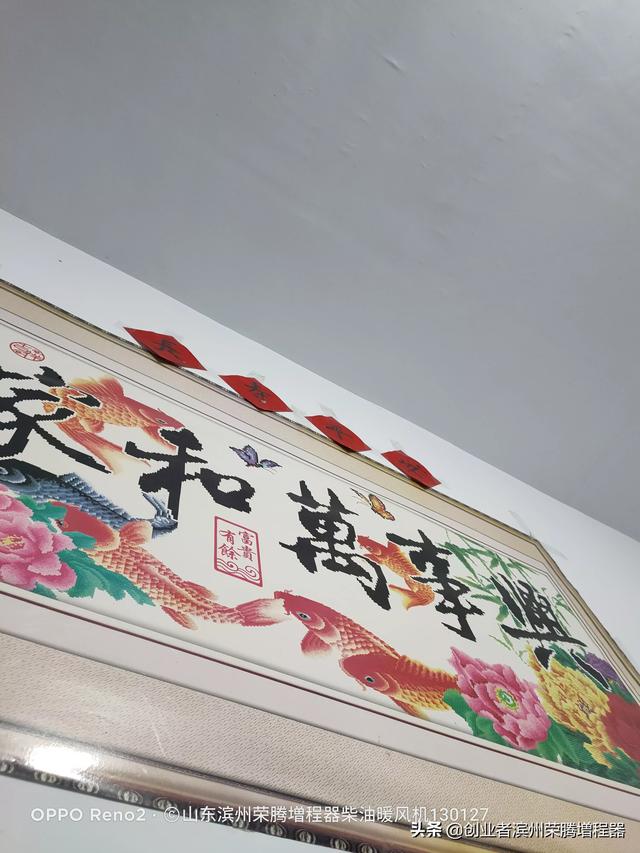 家和萬事興
富貴
有餘
OPPO Reno2 · ©山东滨州荣腾增程器柴油暖风机130127
头条 @创业者滨州荣腾增程器